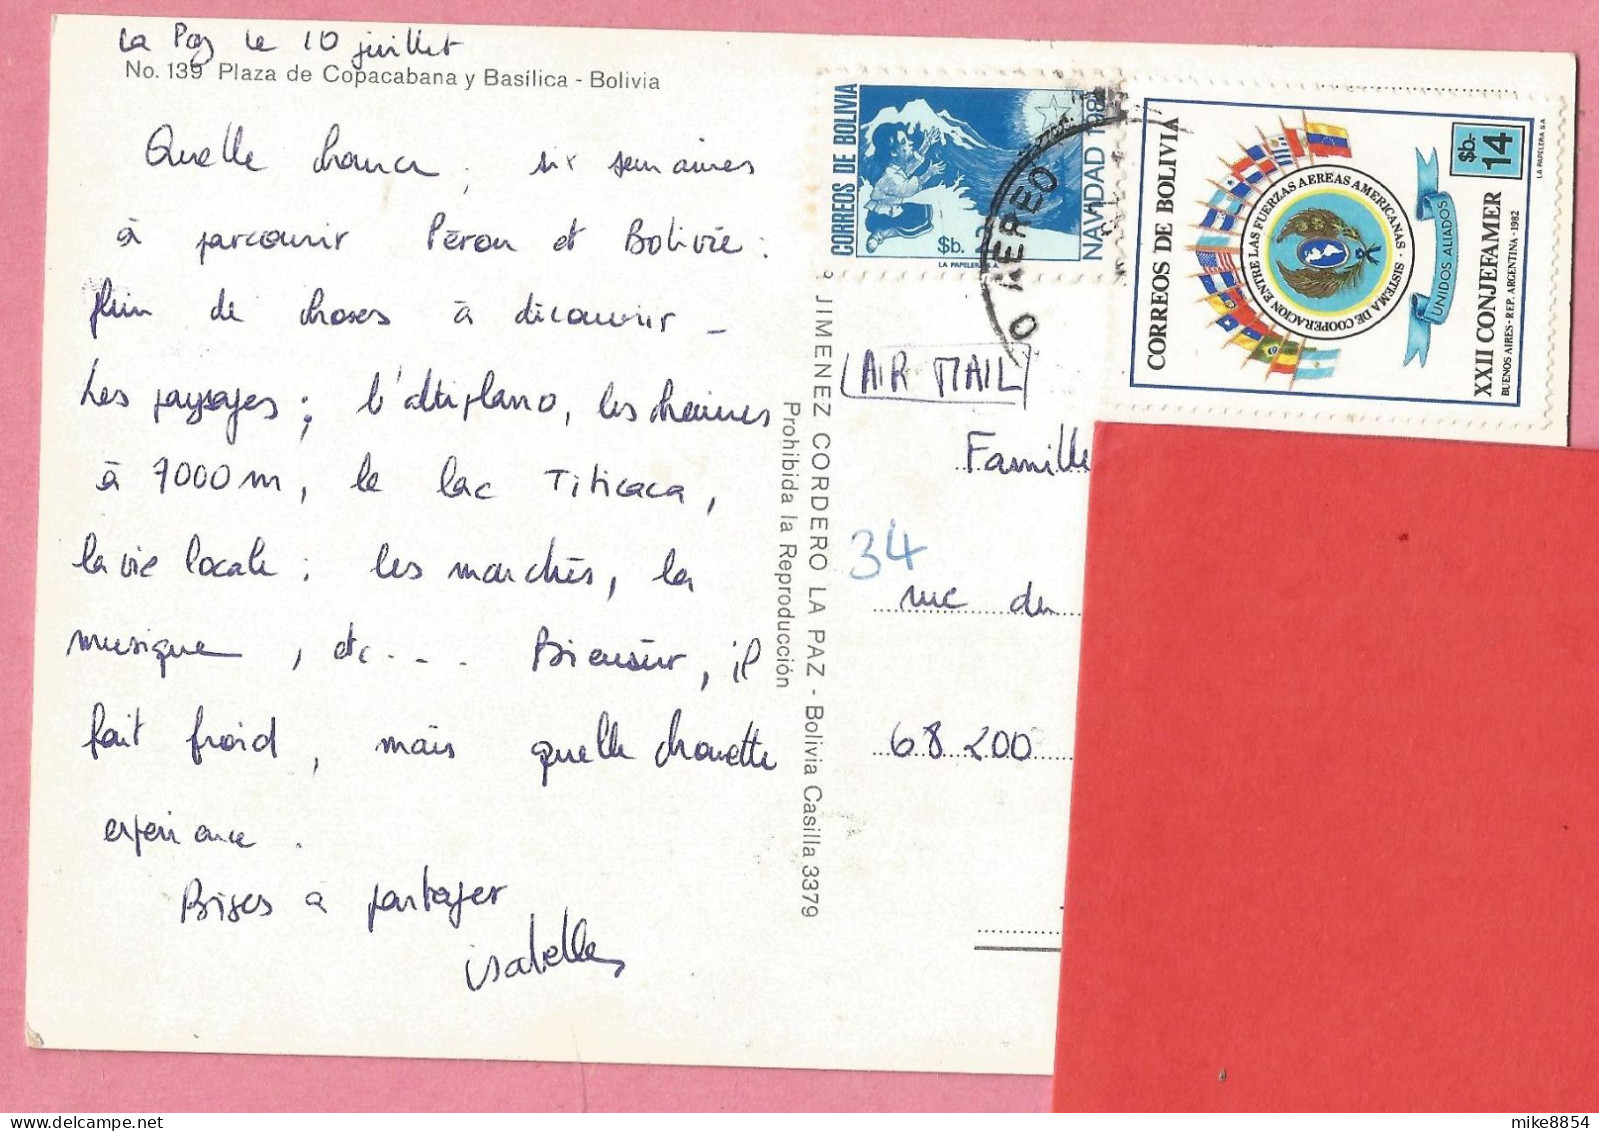 La Paz le 10 juillet
No. 139 Plaza de Copacabana y Basílica - Bolivia
Quelle chance, six semaines
à parcourir Pérou et Bolivie :
plein de choses à découvrir -
Les paysages ; l'altiplano, les chaines
à 7000 m, le lac Titicaca,
la vie locale ; les marchés, la
musique, etc... Biensûr, il
fait froid, mais quelle chouette
expérience.
Bises à partager
isabelle
JIMENEZ CORDERO LA PAZ - Bolivia Casilla 3379
Prohibida la Reproducción
CORREOS DE BOLIVIA
$b.
LA PAPELERA S.A.
NAVIDAD
AEREO
CORREOS DE BOLIVIA
SISTEMA DE COOPERACION ENTRE LAS FUERZAS AEREAS AMERICANAS
UNIDOS ALIADOS
$b.- 14
XXII CONJEFAMER
BUENOS AIRES - REP. ARGENTINA - 1982
LA PAPELERA S.A.
AIR MAIL
Famille
34
rue du
68200
mike8854